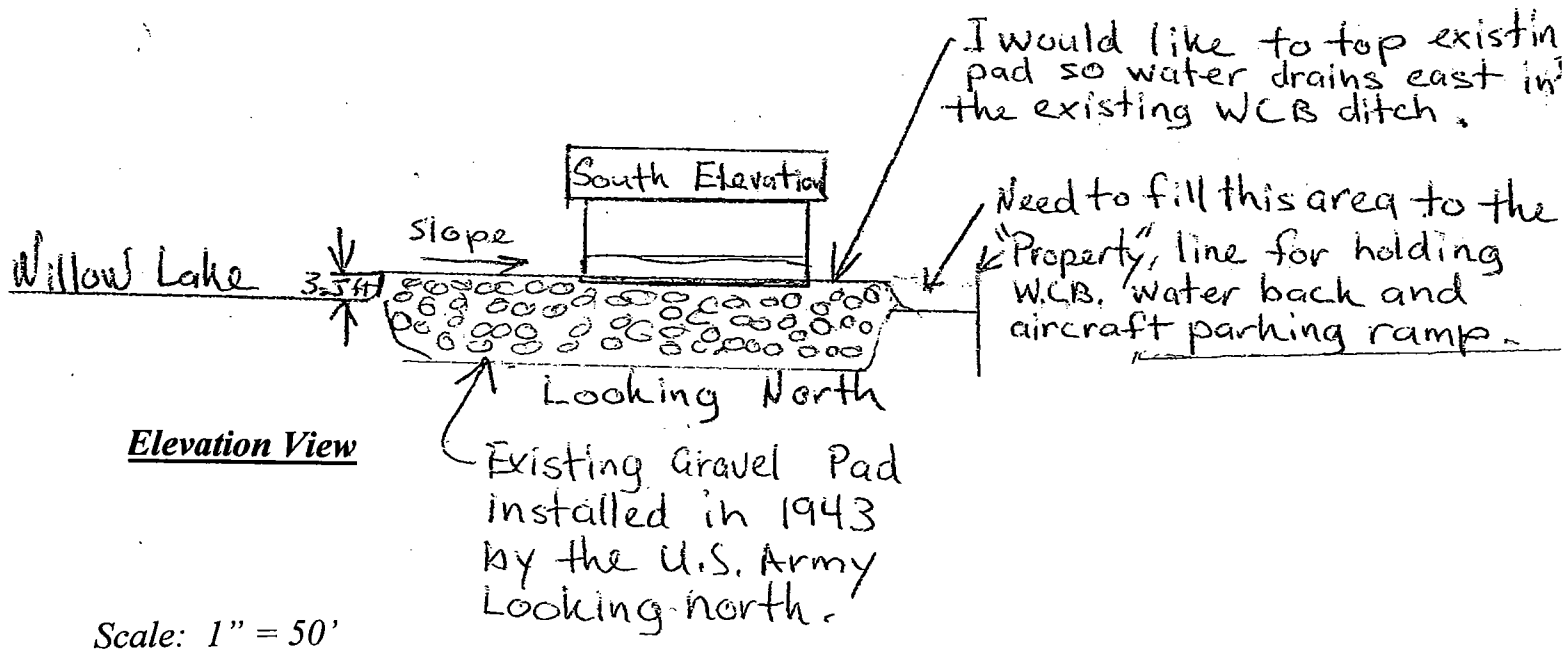 I would like to top existin
pad so water drains east in
the existing WCB ditch.
South Elevation
Need to fill this area to the
"Property", line for holding
W.C.B. water back and
aircraft parking ramp.
Slope
Willow Lake
3.5 ft
Looking North
Elevation View
Existing Gravel Pad
installed in 1943
by the U.S. Army
Looking north.
Scale: 1" = 50'